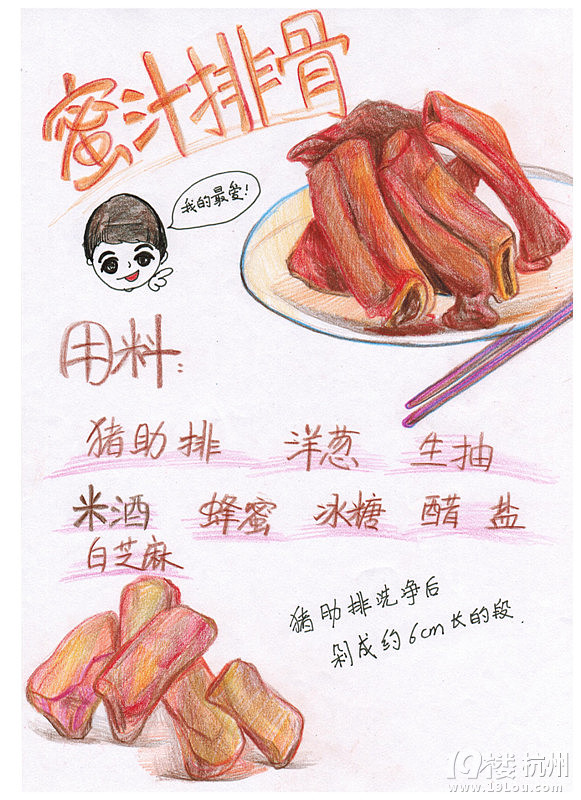 蜜汁排骨
我的最爱!
用料:
猪助排 洋葱 生抽
米酒 蜂蜜 冰糖 醋 盐
白芝麻
猪助排洗净后
剁成约6cm长的段.
19楼杭州
www.19lou.com